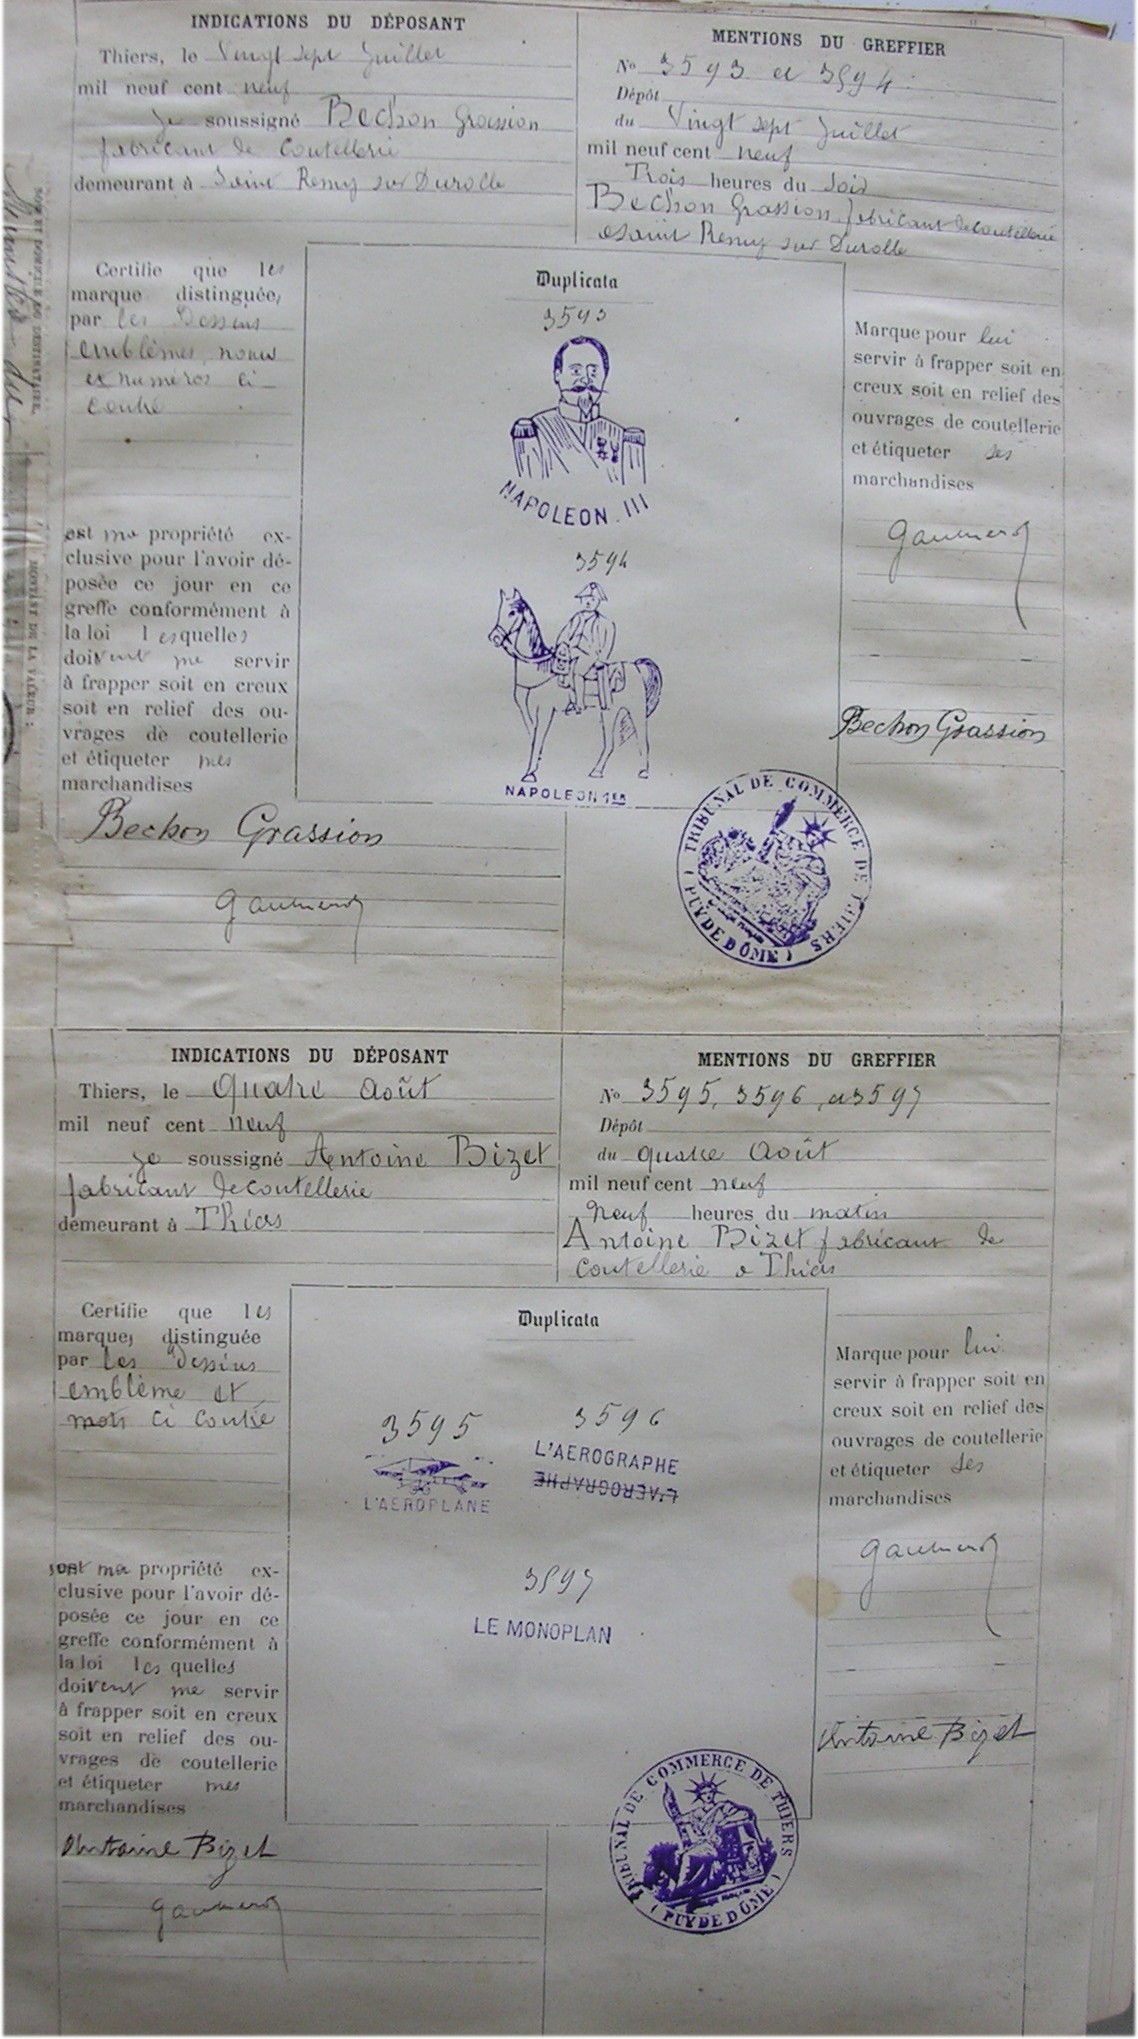 INDICATIONS DU DÉPOSANT
Thiers, le Vingt sept Juillet
mil neuf cent neuf
Je soussigné Bechon Grassion
fabricant de Coutellerie
demeurant à Saint Remy sur Durolle
MENTIONS DU GREFFIER
No 3593 et 3594
Dépôt
du Vingt sept Juillet
mil neuf cent neuf
Trois heures du Soir
Bechon Grassion fabricant de coutellerie
a Saint Remy sur Durolle
Certifie que les
marque distinguées
par les Dessins
emblèmes noms
et numéros ci
contre
est ma propriété ex-
clusive pour l'avoir dé-
posée ce jour en ce
greffe conformément à
la loi lesquelles
doivent me servir
à frapper soit en creux
soit en relief des ou-
vrages de coutellerie
et étiqueter mes
marchandises
Bechon Grassion
Duplicata
3593
NAPOLEON III
3594
NAPOLEON 1ER
Marque pour lui
servir à frapper soit en
creux soit en relief des
ouvrages de coutellerie
et étiqueter ses
marchandises
Bechon Grassion
TRIBUNAL DE COMMERCE DE THIERS
( PUY DE DÔME )
NOM ET DOMICILE DU DESTINATAIRE.
MONTANT DE LA VALEUR :
INDICATIONS DU DÉPOSANT
Thiers, le quatre Août
mil neuf cent neuf
Je soussigné Antoine Bizet
fabricant de coutellerie
demeurant à Thiers
MENTIONS DU GREFFIER
No 3595, 3596, et 3597
Dépôt
du quatre Août
mil neuf cent neuf
Neuf heures du matin
Antoine Bizet fabricant de
coutellerie a Thiers
Certifie que les
marques distinguée
par les Dessins
emblème et
mots ci contre
sont ma propriété ex-
clusive pour l'avoir dé-
posée ce jour en ce
greffe conformément à
la loi lesquelles
doivent me servir
à frapper soit en creux
soit en relief des ou-
vrages de coutellerie
et étiqueter mes
marchandises
Antoine Bizet
Duplicata
3595
L'AEROPLANE
3596
L'AEROGRAPHE
L'AEROGRAPHE
3597
LE MONOPLAN
Marque pour lui
servir à frapper soit en
creux soit en relief des
ouvrages de coutellerie
et étiqueter ses
marchandises
Antoine Bizet
TRIBUNAL DE COMMERCE DE THIERS
( PUY DE DÔME )